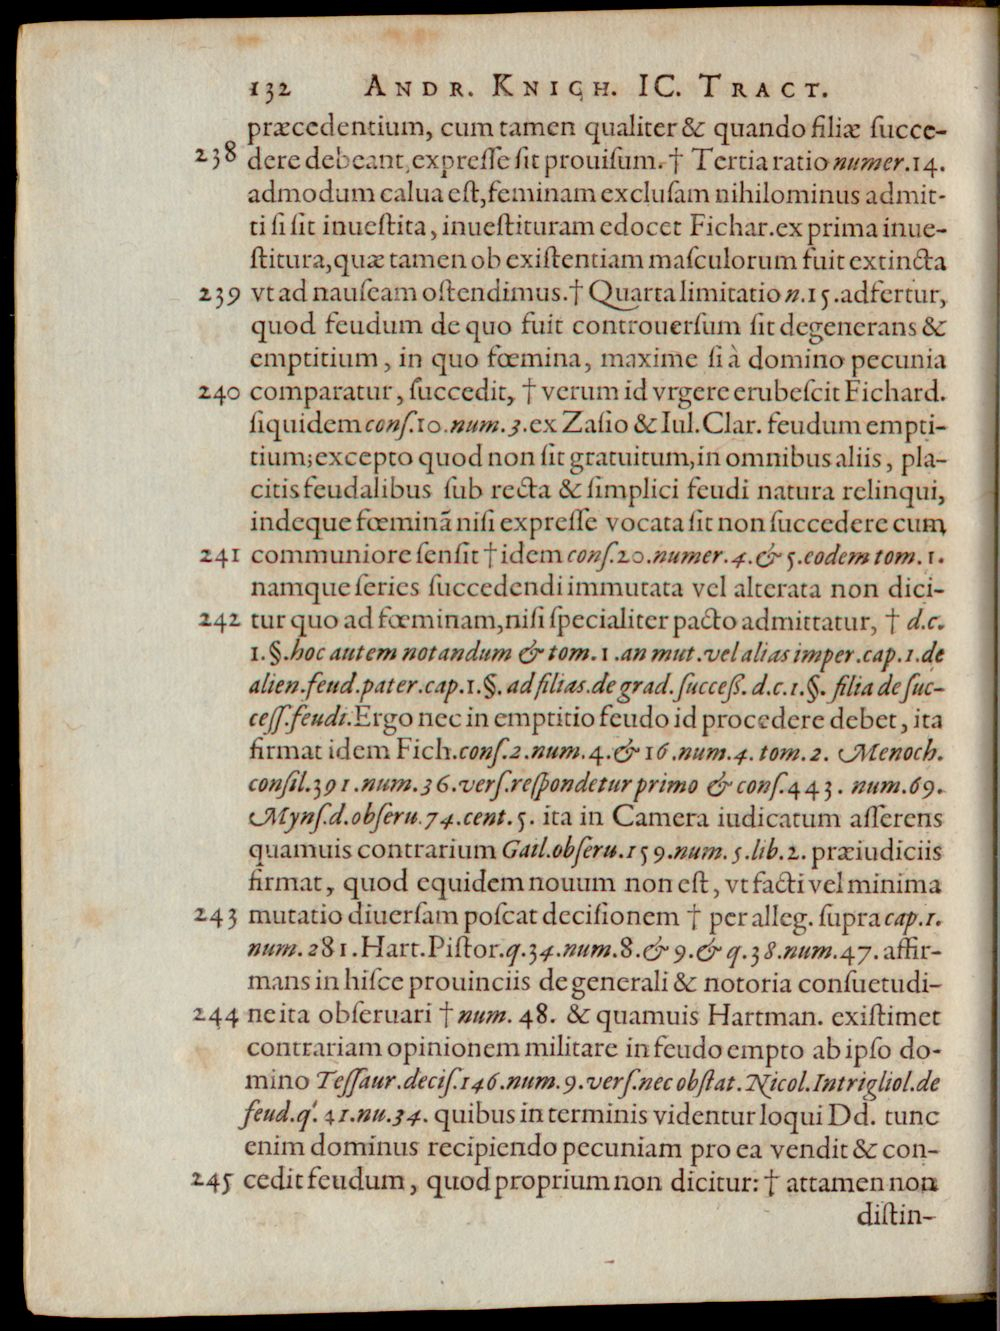 132 ANDR. KNICH. IC. TRACT.
præcedentium, cum tamen qualiter & quando filiæ ſucce-
238 dere debeant, expreſſe ſit prouiſum. † Tertia ratio numer. 14.
admodum calua eſt, feminam excluſam nihilominus admit-
ti ſi ſit inueſtita, inueſtituram edocet Fichar. ex prima inue-
ſtitura, quæ tamen ob exiſtentiam maſculorum fuit extincta
239 vt ad nauſeam oſtendimus. † Quarta limitatio n. 15. adfertur,
quod feudum de quo fuit controuerſum ſit degenerans &
emptitium, in quo fœmina, maxime ſi à domino pecunia
240 comparatur, ſuccedit, † verum id vrgere erubeſcit Fichard.
ſiquidem conſ. 10. num. 3. ex Zaſio & Iul. Clar. feudum empti-
tium; excepto quod non ſit gratuitum, in omnibus aliis, pla-
citis feudalibus ſub recta & ſimplici feudi natura relinqui,
indeque fœminã niſi expreſſe vocata ſit non ſuccedere cum
241 communiore ſenſit † idem conſ. 20. numer. 4. & 5. eodem tom. 1.
namque ſeries ſuccedendi immutata vel alterata non dici-
242 tur quo ad fœminam, niſi ſpecialiter pacto admittatur, † d. c.
1. §. hoc autem notandum & tom. 1. an mut. vel alias imper. cap. 1. de
alien. feud. pater. cap. 1. §. ad filias. de grad. ſucceß. d. c. 1. §. filia de ſuc-
ceſſ. feudi. Ergo nec in emptitio feudo id procedere debet, ita
firmat idem Fich. conſ. 2. num. 4. & 16. num. 4. tom. 2. Menoch.
conſil. 391. num. 36. verſ. reſpondetur primo & conſ. 443. num. 69.
Mynſ. d. obſeru. 74. cent. 5. ita in Camera iudicatum aſſerens
quamuis contrarium Gail. obſeru. 159. num. 5. lib. 2. præiudiciis
firmat, quod equidem nouum non eſt, vt facti vel minima
243 mutatio diuerſam poſcat deciſionem † per alleg. ſupra cap. 1.
num. 281. Hart. Piſtor. q. 34. num. 8. & 9. & q. 38. num. 47. affir-
mans in hiſce prouinciis de generali & notoria conſuetudi-
244 ne ita obſeruari † num. 48. & quamuis Hartman. exiſtimet
contrariam opinionem militare in feudo empto ab ipſo do-
mino Teſſaur. deciſ. 146. num. 9. verſ. nec obſtat. Nicol. Intrigliol. de
feud. q. 41. nu. 34. quibus in terminis videntur loqui Dd. tunc
enim dominus recipiendo pecuniam pro ea vendit & con-
245 cedit feudum, quod proprium non dicitur: † attamen non
diſtin-